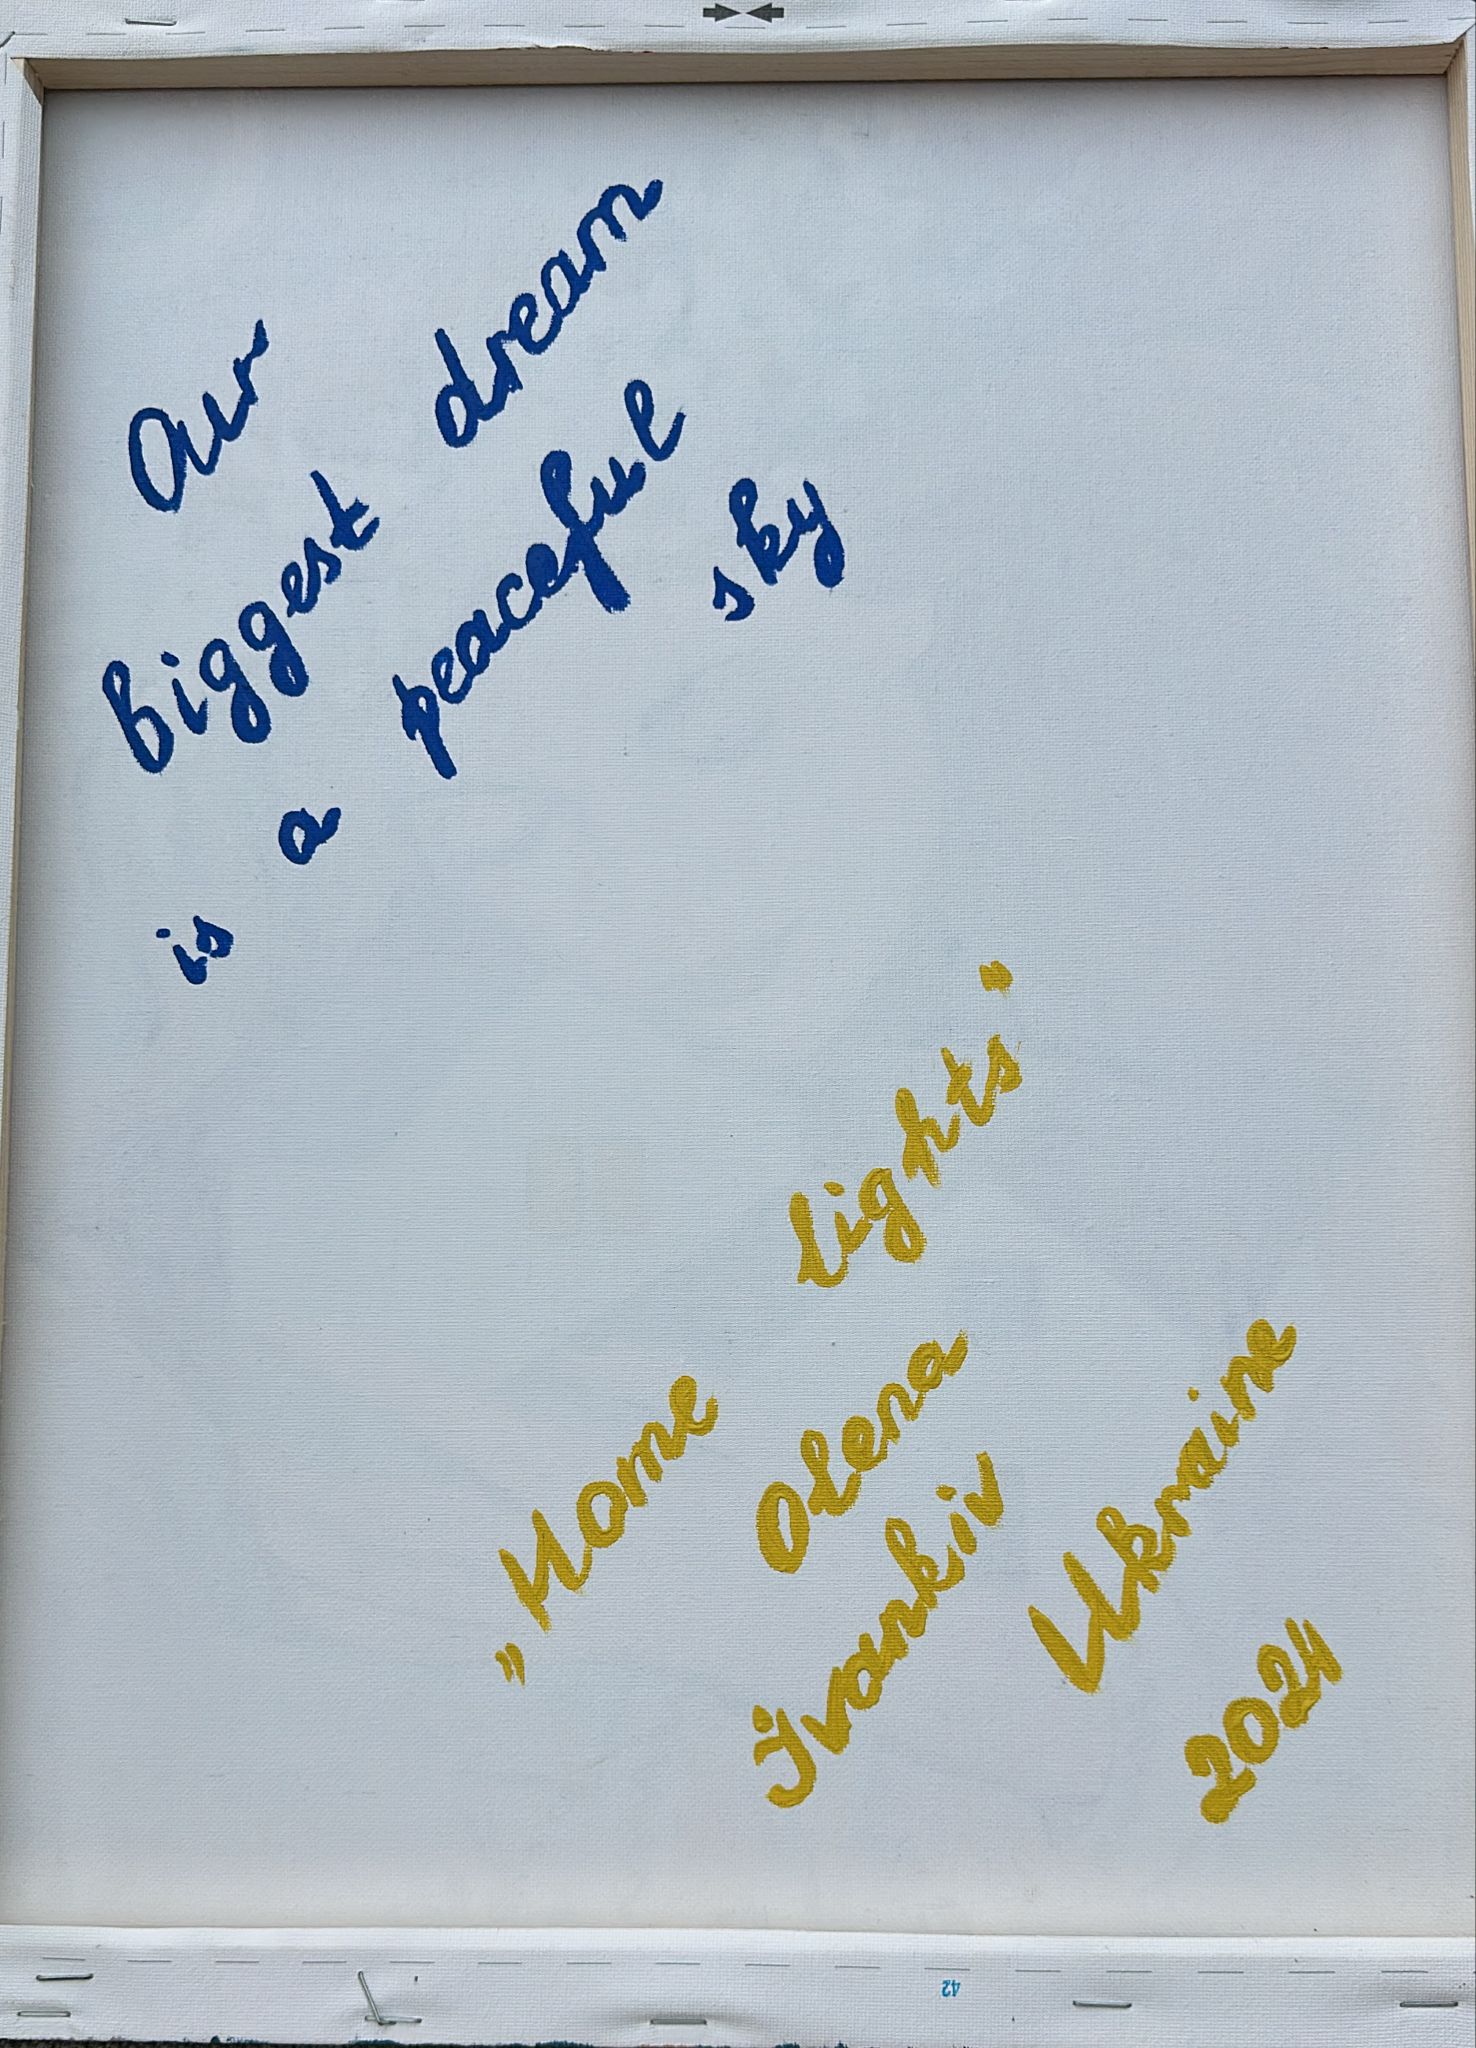 Our
biggest dream
is a peaceful
sky
„Home lights"
Olena
Ivankiv
Ukraine
2024
42